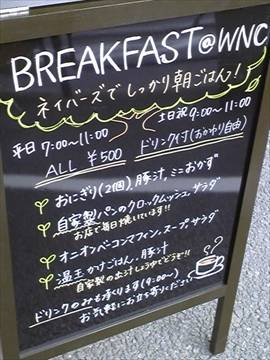 BREAKFAST@WNC
ネイバーズでしっかり朝ごはん!
平日 7:00〜11:00
土日祝 9:00〜11:00
ALL ¥500
ドリンク付(おかわり自由)
おにぎり(2個)、豚汁、ミニおかず
自家製パンのクロックムッシュ、サラダ
お店で毎日焼いています!!
オニオンベーコンマフィン、スープ、サラダ
温玉かけごはん、豚汁
自家製の出汁しょうゆでどうぞ!!
ドリンクのみも承ります(9:00〜)
お気軽にお立ち寄りください